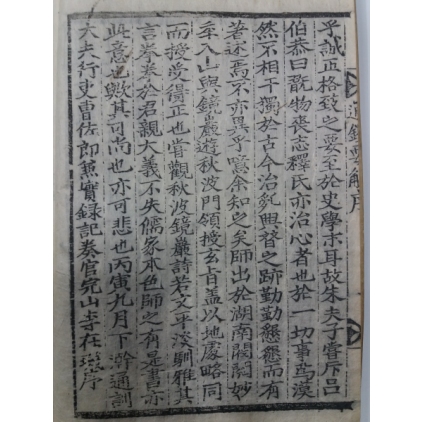 乎誠正格致之要至於史學末耳故朱夫子嘗斥呂
伯恭曰翫物喪志釋氏亦治心者也於一切事爲漠
然不相干獨於古今治亂興替之跡勤勤懇懇而有
著述焉不亦異乎噫余知之矣師出於湖南關關妙
年入山與鏡巖遊秋波門領授玄旨盖以地處略同
而授受得正也甞觀秋波鏡巖詩若文平淡馴雅其
言拳拳於君親大義不失儒家本色師之有是書亦
此意也歟其可尚也亦可悲也丙寅九月下澣通訓
大夫行吏曹佐郎兼實録記奏官完山李在瑬序
通鑑要解序